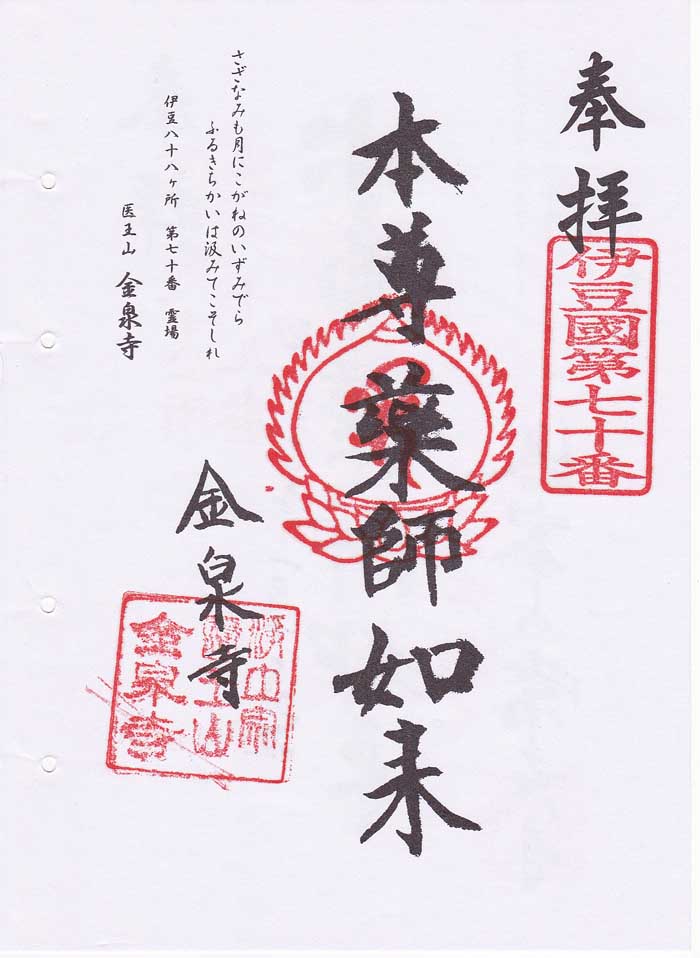 奉拝
伊豆國第七十番
本尊薬師如来
金泉寺
医王山
金泉寺
さざなみも月にこがねのいずみでら
ふるきちかいは汲みてこそしれ
伊豆八十八ヶ所 第七十番 霊場
医王山 金泉寺